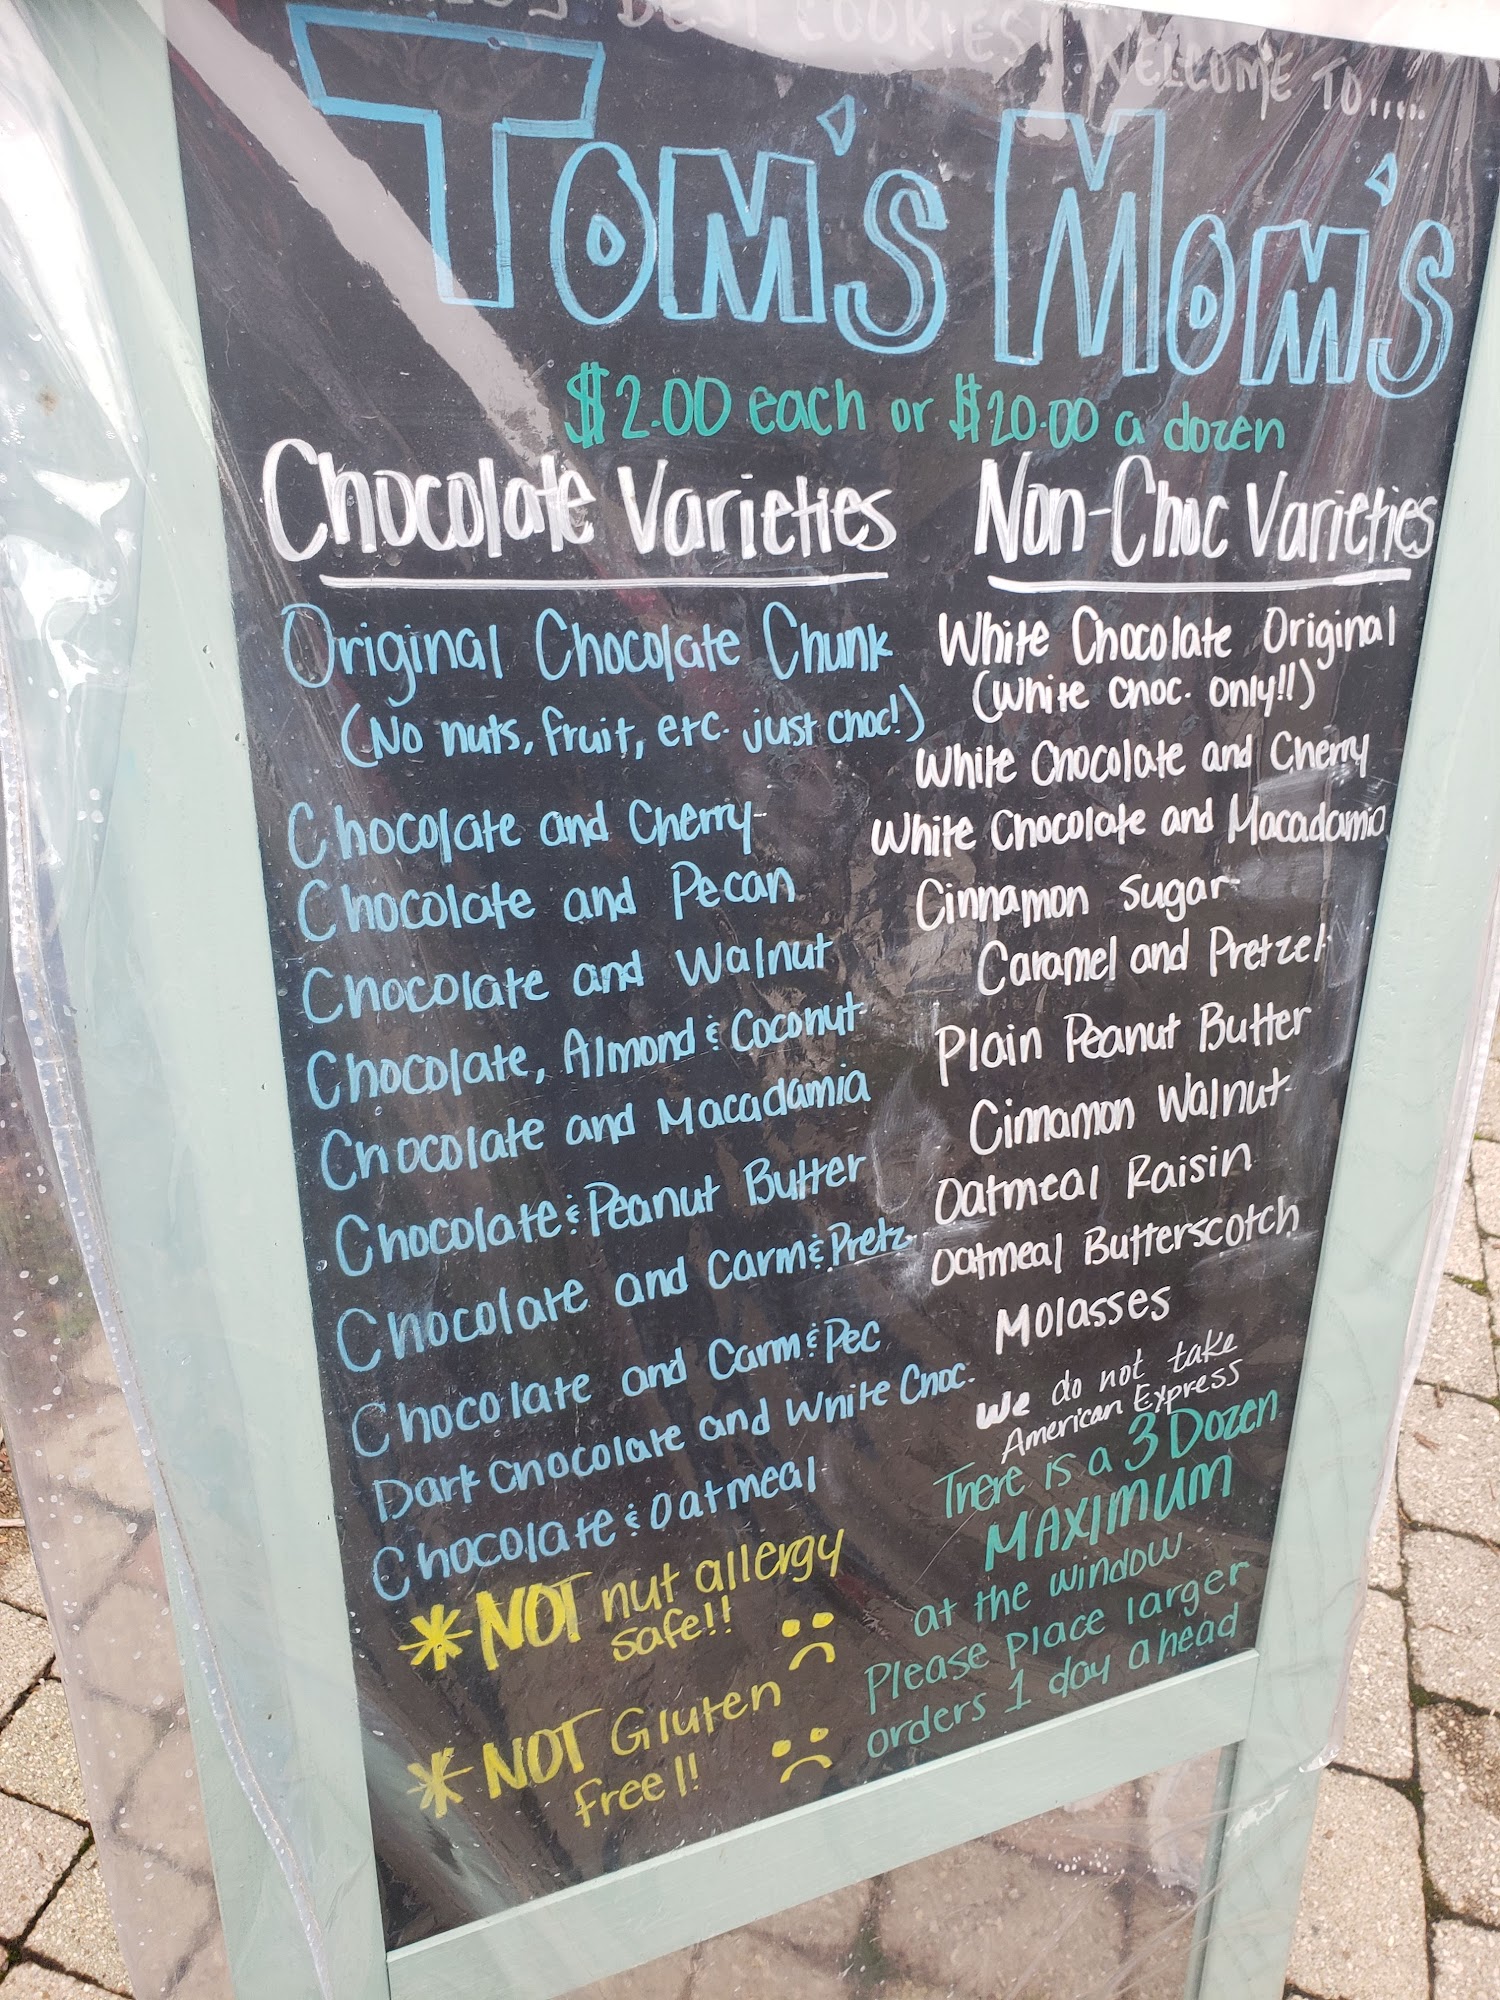 BEST COOKIES! WELCOME TO.....
Tom's Mom's
$2.00 each or $20.00 a dozen
Chocolate Varieties
Original Chocolate Chunk
(No nuts, fruit, etc. just choc!)
Chocolate and Cherry
Chocolate and Pecan
Chocolate and Walnut
Chocolate, Almond & Coconut
Chocolate and Macadamia
Chocolate & Peanut Butter
Chocolate and Carm & Pretz
Chocolate and Carm & Pec
Dark Chocolate and White Choc.
Chocolate & Oatmeal
*NOT nut allergy
safe!!
*NOT Gluten
free!!
Non-Choc Varieties
White Chocolate Original
(White choc. only!!)
White Chocolate and Cherry
White Chocolate and Macadamia
Cinnamon Sugar
Caramel and Pretzel
Plain Peanut Butter
Cinnamon Walnut
Oatmeal Raisin
Oatmeal Butterscotch
Molasses
We do not take
American Express
There is a 3 Dozen
MAXIMUM
at the window
Please Place larger
orders 1 day ahead